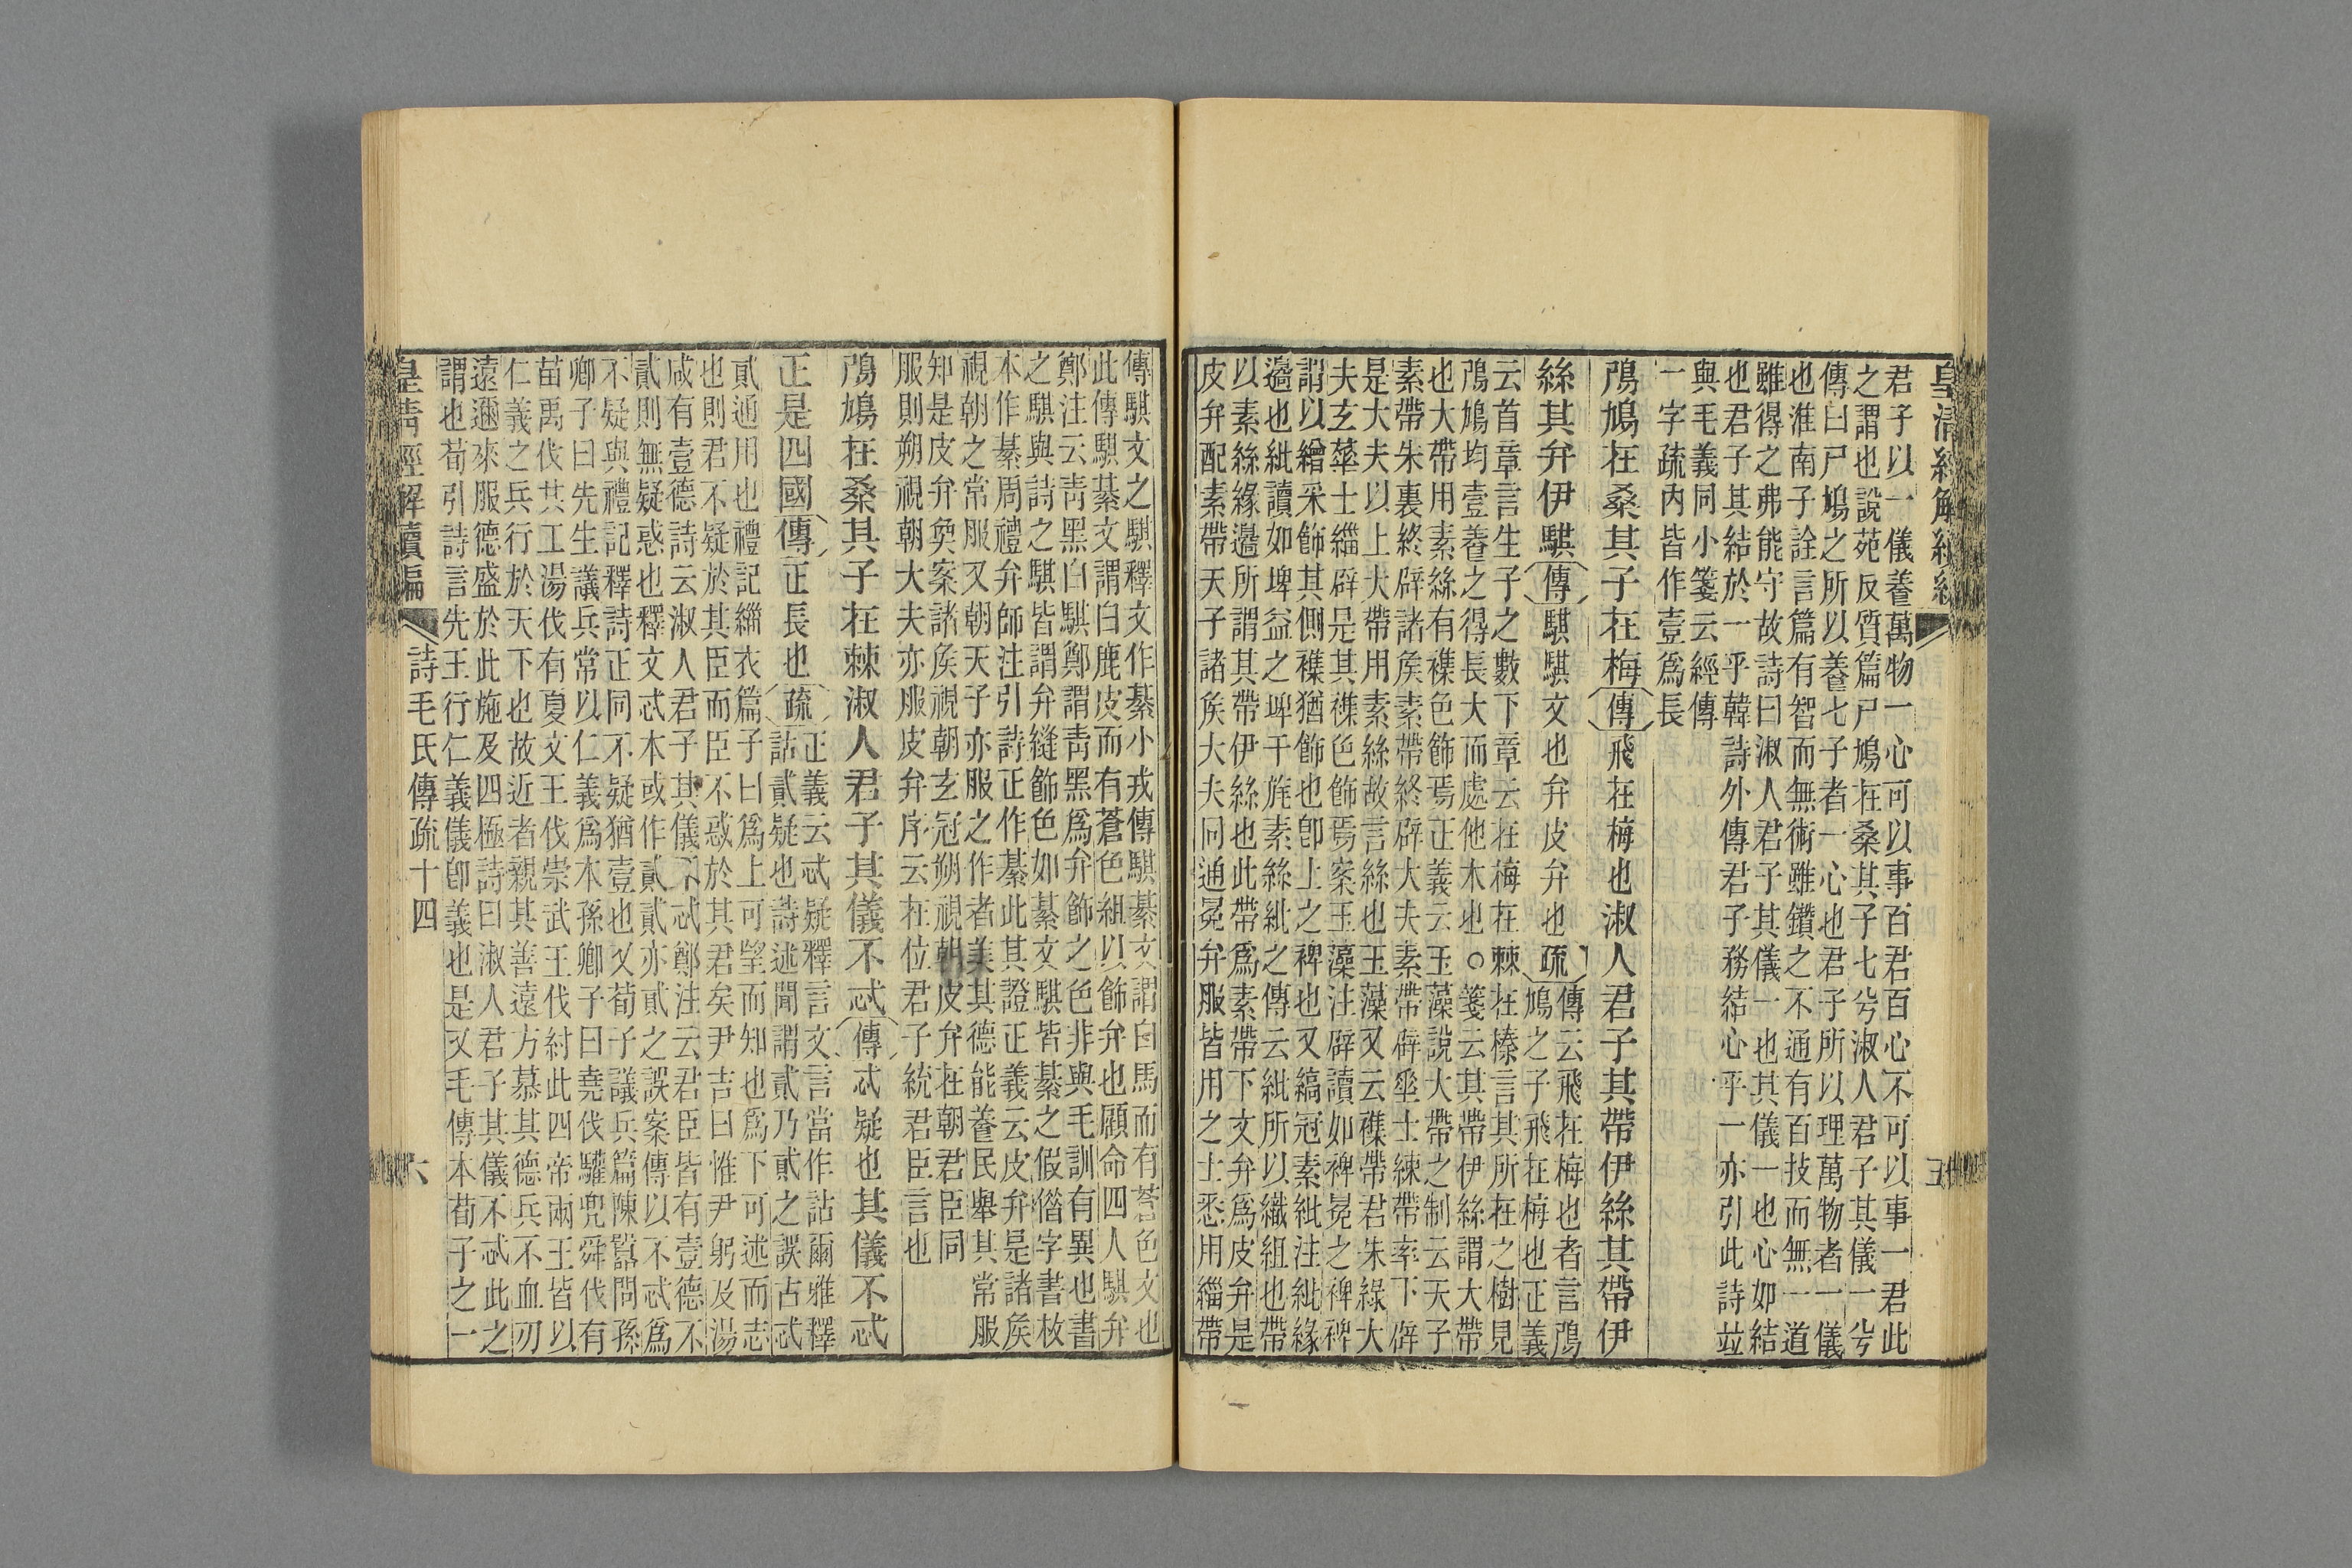 皇清經解續編
五
君子以一儀養萬物一心可以事百君百心不可以事一君此
之謂也說苑反質篇尸鳩在桑其子七兮淑人君子其儀一兮
傳曰尸鳩之所以養七子者一心也君子所以理萬物者一儀
也淮南子詮言篇有智而無術雖鑽之不通有百技而無一道
雖得之弗能守故詩曰淑人君子其儀一也其儀一也心如結
也君子其結於一乎韓詩外傳君子務結心乎一亦引此詩竝
與毛義同小箋云經傳
一字疏內皆作壹爲長
鳲鳩在桑其子在梅傳飛在梅也淑人君子其帶伊絲其帶伊
絲其弁伊騏傳騏騏文也弁皮弁也疏
傳云飛在梅也者言鳲
鳩之子飛在梅也正義
云首章言生子之數下章云在梅在棘在榛言其所在之樹見
鳲鳩均壹養之得長大而處他木也○箋云其帶伊絲謂大帶
也大帶用素絲有襍色飾焉正義云玉藻說大帶之制云天子
素帶朱裏終辟諸矦素帶終辟大夫素帶辟垂士練帶率下辟
是大夫以上大帶用素絲故言絲也玉藻又云襍帶君朱綠大
夫玄華士緇辟是其襍色飾焉案玉藻注辟讀如裨冕之裨裨
謂以繒采飾其側襍猶飾也卽上之裨也又縞冠素紕注紕緣
邊也紕讀如埤益之埤干旄素絲紕之傳云紕所以織組也帶
以素絲緣邊所謂其帶伊絲也此帶爲素帶下文弁爲皮弁是
皮弁配素帶天子諸矦大夫同通冕弁服皆用之士悉用緇帶
傳騏文之騏釋文作綦小戎傳騏綦文謂白馬而有蒼色文也
此傳騏綦文謂白鹿皮而有蒼色組以飾弁也顧命四人騏弁
鄭注云靑黑曰騏鄭謂靑黑爲弁飾之色非與毛訓有異也書
之騏與詩之騏皆謂弁縫飾色如綦文騏皆綦之假偺字書枚
本作綦周禮弁師注引詩正作綦此其證正義云皮弁是諸矦
視朝之常服又朝天子亦服之作者美其德能養民舉其常服
知是皮弁矣案諸矦視朝玄冠朔視朝皮弁在朝君臣同
服則朔視朝大夫亦服皮弁序云在位君子統君臣言也
鳲鳩在桑其子在棘淑人君子其儀不忒傳忒疑也其儀不忒
正是四國傳正長也疏
正義云忒疑釋言文言當作詁爾雅釋
詁貳疑也詩述聞謂貳乃貳之誤古忒
貳通用也禮記緇衣篇子曰爲上可望而知也爲下可述而志
也則君不疑於其臣而臣不惑於其君矣尹吉曰惟尹躬及湯
咸有壹德詩云淑人君子其儀不忒鄭注云君臣皆有壹德不
貳則無疑惑也釋文忒本或作貳貳亦貳之誤案傳以不忒爲
不疑與禮記釋詩正同不疑猶壹也又荀子議兵篇陳囂問孫
卿子曰先生議兵常以仁義爲本孫卿子曰堯伐驩兜舜伐有
苗禹伐共工湯伐有夏文王伐崇武王伐紂此四帝兩王皆以
仁義之兵行於天下也故近者親其善遠方慕其德兵不血刃
遠邇來服德盛於此施及四極詩曰淑人君子其儀不忒此之
謂也荀引詩言先王行仁義儀卽義也是又毛傳本荀子之一
皇清經解續編
詩毛氏傳疏十四
六